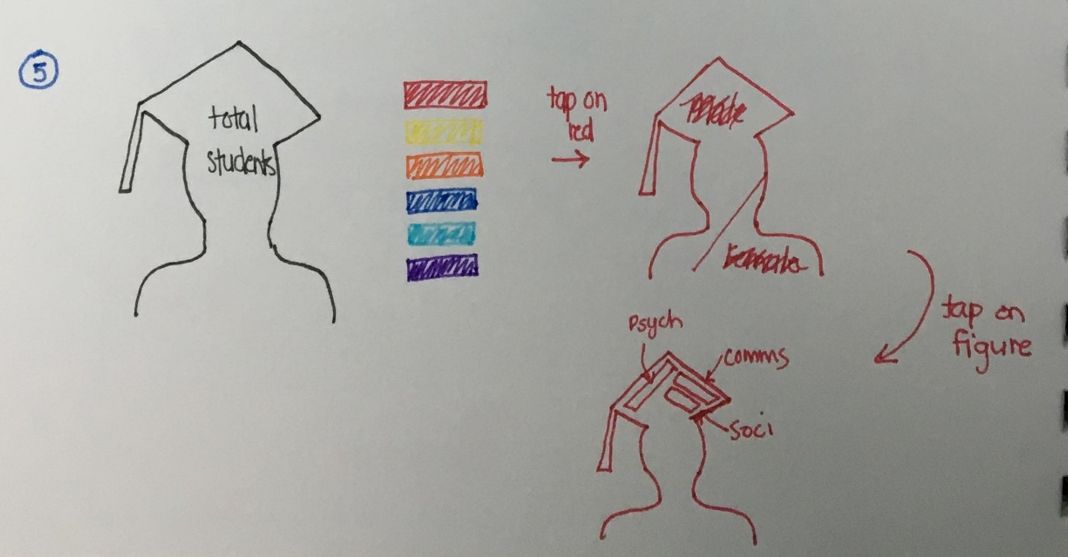 5
total
students
tap on
red
tap on
figure
Psych
comms
soci